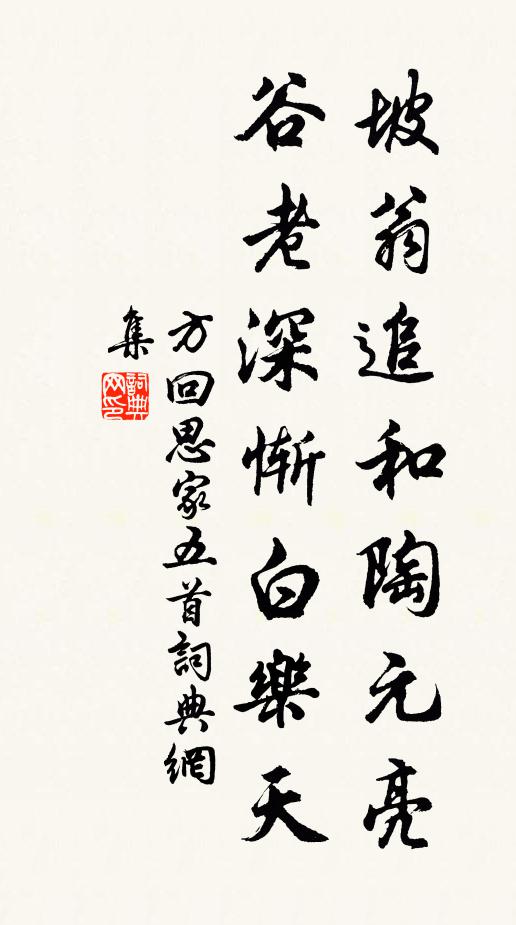 坡翁追和陶元亮
谷老深惭白樂天
方回思家五首詞典網
集
詞典
网印